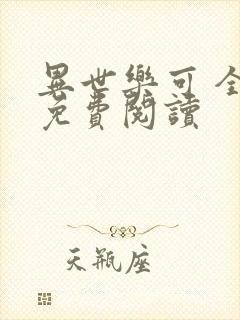 異世樂可全
免費閱讀
天瓶座